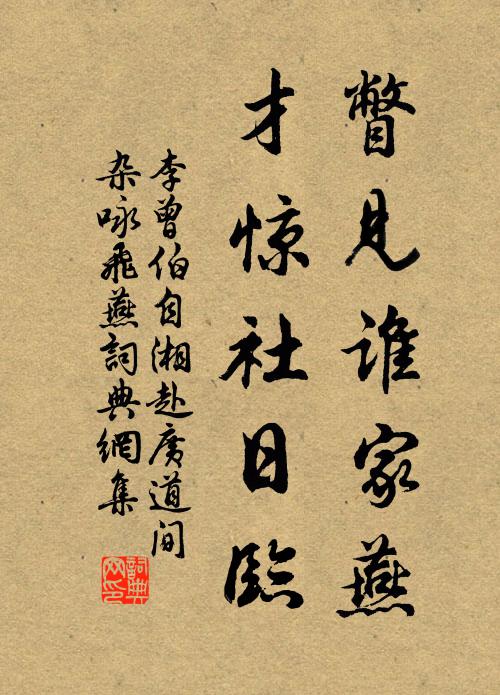 瞥见谁家燕
才惊社日临
李曾伯自湘赴广道间
杂咏飞燕词典网集
词典网印